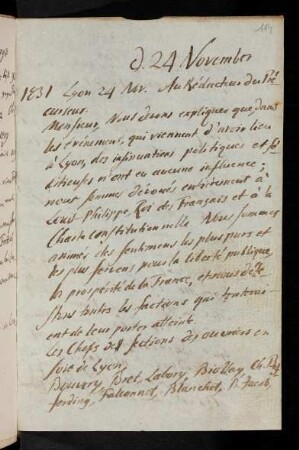 d. 24. November
1831 Lyon 24 Nov. Au Rédacteur du Pré
curseur.
Monsieur, Nous devons expliquer que, dans
les événemens, qui viennent d'avoir lieu
à Lyon, des insinuations politiques et sé
ditieuses n'ont eu aucune influence;
nous sommes dévoués entièrement à
Louis Philippe Roi des Français et à la
Charte constitutionnelle. Nous sommes
animés des sentimens les plus purs et
les plus pour la liberté publique,
la prospérité de la France, et nous dete
stons toutes les factions qui tenteroi
ent de leur porter atteinte.
Les Chefs des sections des ouvriers en
soie de Lyon:
Bouvery, Bret, Labory, Biollay, Ch.
Falconnet, Blanchet, P. Jacob,